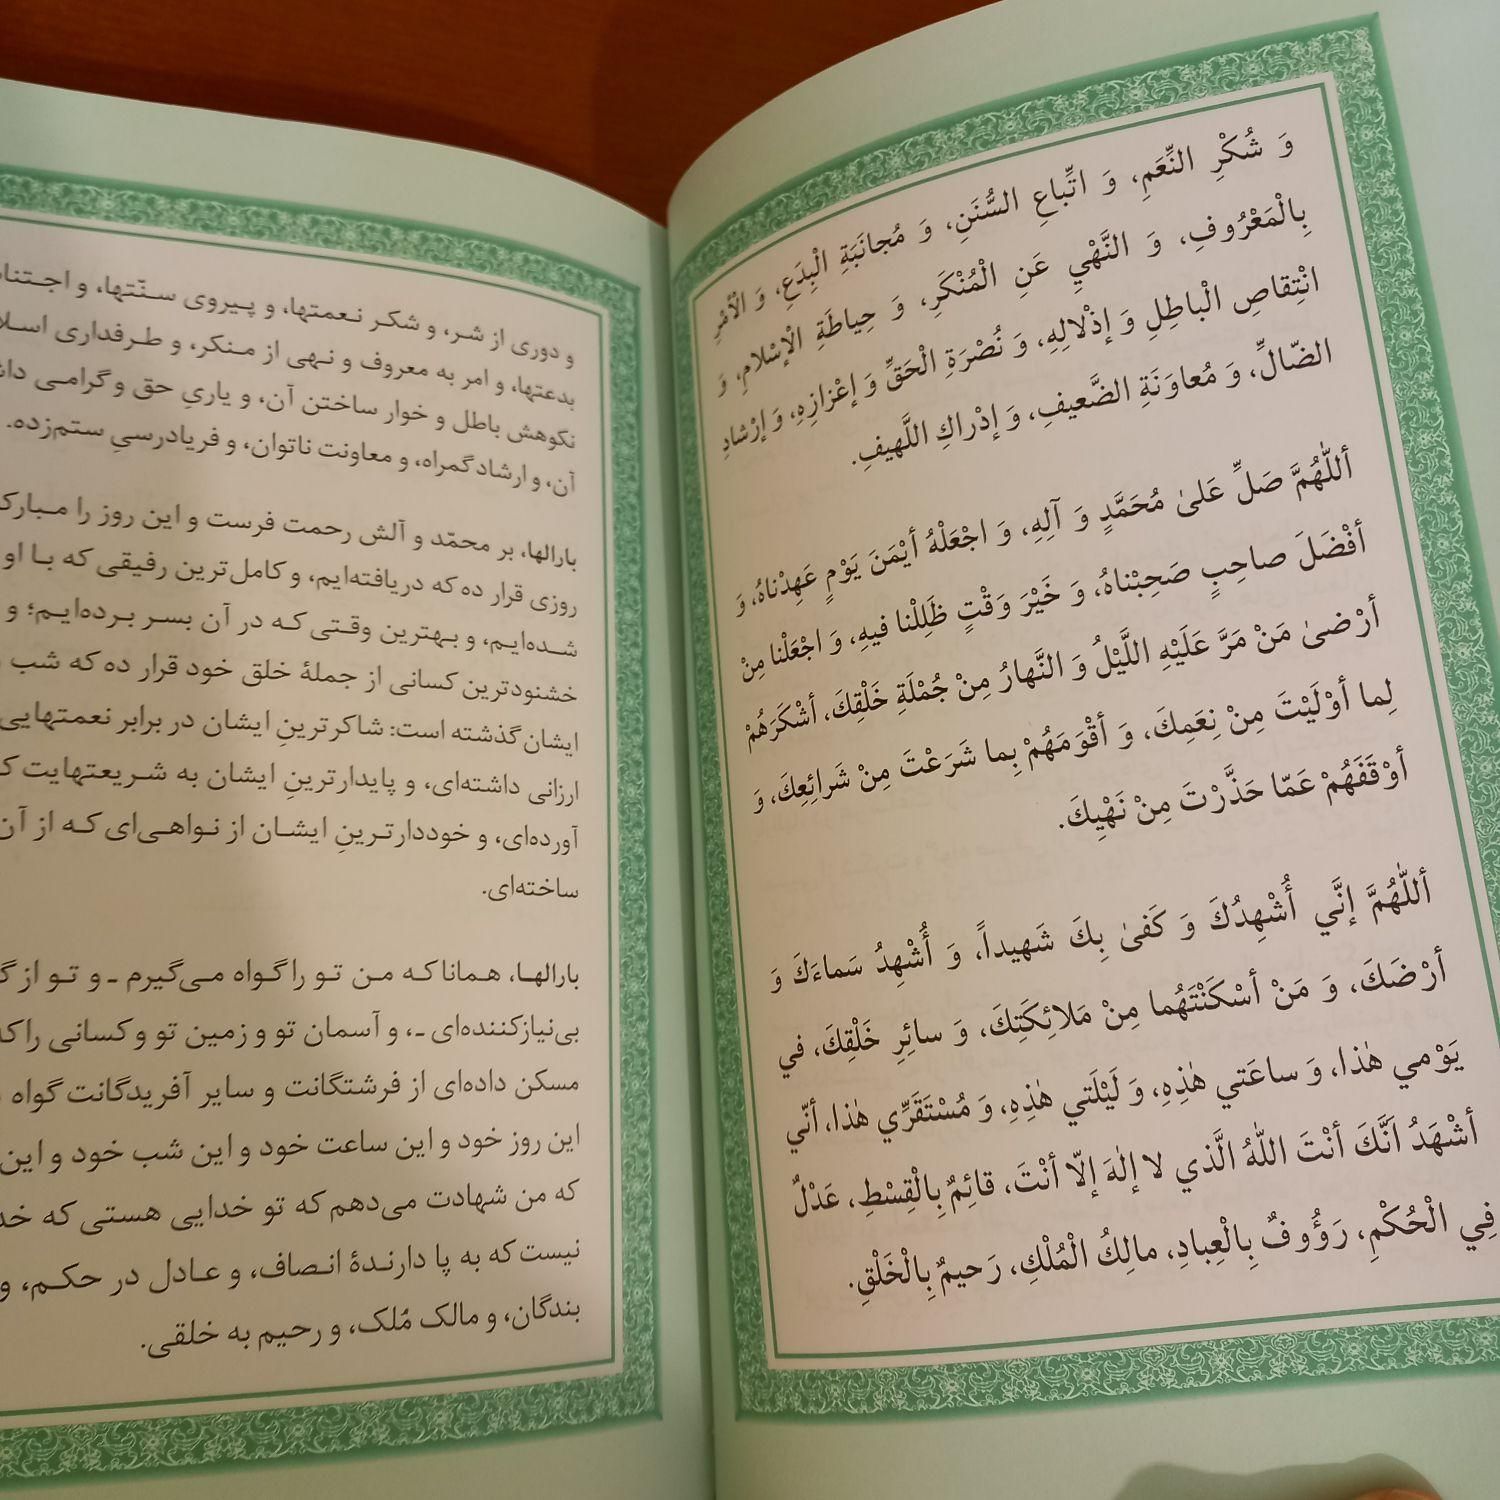 وَ شُكْرِ النِّعَمِ، وَ اتِّباعِ السُّنَنِ، وَ مُجانَبَةِ الْبِدَعِ، وَ الْأَمْرِ
بِالْمَعْرُوفِ، وَ النَّهْيِ عَنِ الْمُنْكَرِ، وَ حِياطَةِ الْإسْلامِ، وَ
انْتِقاصِ الْباطِلِ وَ إذْلالِهِ، وَ نُصْرَةِ الْحَقِّ وَ إعْزازِهِ، وَ إرْشادِ
الضّالِّ، وَ مُعاوَنَةِ الضَّعيفِ، وَ إدْراكِ اللَّهيفِ.
أللّٰهُمَّ صَلِّ عَلىٰ مُحَمَّدٍ وَ آلِهِ، وَ اجْعَلْهُ أيْمَنَ يَوْمٍ عَهِدْناهُ، وَ
أفْضَلَ صاحِبٍ صَحِبْناهُ، وَ خَيْرَ وَقْتٍ ظَلِلْنا فيهِ، وَ اجْعَلْنا مِنْ
أرْضىٰ مَنْ مَرَّ عَلَيْهِ اللَّيْلُ وَ النَّهارُ مِنْ جُمْلَةِ خَلْقِكَ، أشْكَرَهُمْ
لِما أوْلَيْتَ مِنْ نِعَمِكَ، وَ أقْوَمَهُمْ بِما شَرَعْتَ مِنْ شَرائِعِكَ، وَ
أوْقَفَهُمْ عَمّا حَذَّرْتَ مِنْ نَهْيِكَ.
أللّٰهُمَّ إنَّي أُشْهِدُكَ وَ كَفىٰ بِكَ شَهيداً، وَ أُشْهِدُ سَماءَكَ وَ
أرْضَكَ، وَ مَنْ أسْكَنْتَهُما مِنْ مَلائِكَتِكَ، وَ سائِرِ خَلْقِكَ، في
يَوْمي هٰذا، وَ ساعَتي هٰذِهِ، وَ لَيْلَتي هٰذِهِ، وَ مُسْتَقَرِّي هٰذا، أنّي
أشْهَدُ اَنَّكَ أنْتَ اللّٰهُ الَّذي لا إلٰهَ إلّا أنْتَ، قائِمٌ بِالْقِسْطِ، عَدْلٌ
فِي الْحُكْمِ، رَؤُوفٌ بِالْعِبادِ، مالِكُ الْمُلْكِ، رَحيمٌ بِالْخَلْقِ.
و دوری از شر، و شکر نعمتها، و پیروی سنّتها، و
بدعتها، و امر به معروف و نهی از منکر، و طرفداری
نکوهش باطل و خوار ساختن آن، و یاریِ حق و گرامی
آن، و ارشاد گمراه، و معاونت ناتوان، و فریادرسیِ ستم‌زده.
بارالها، بر محمّد و آلش رحمت فرست و این روز را
روزی قرار ده که دریافته‌ایم، و کامل‌ترین رفیقی که با او
شده‌ایم، و بهترین وقتی که در آن بسر برده‌ایم؛ و
خشنودترین کسانی از جملهٔ خلق خود قرار ده که شب
ایشان گذشته است: شاکرترینِ ایشان در برابر نعمتهایی
ارزانی داشته‌ای، و پایدارترینِ ایشان به شریعتهایت
آورده‌ای، و خوددارترینِ ایشان از نواهی‌ای که از آن
ساخته‌ای.
بارالها، همانا که من تو را گواه می‌گیرم ـ و تو از
بی‌نیازکننده‌ای ـ، و آسمان تو و زمین تو و کسانی را
مسکن داده‌ای از فرشتگانت و سایر آفریدگانت گواه
این روز خود و این ساعت خود و این شب خود و این
که من شهادت می‌دهم که تو خدایی هستی که
نیست که به پا دارندهٔ انصاف، و عادل در حکم، و
بندگان، و مالک مُلک، و رحیم به خلقی.